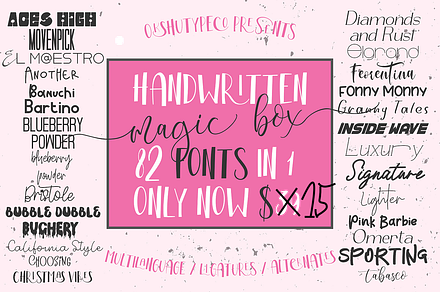 OLSHUTYPECO PRESENTS
ACES HIGH
MOVENPICK
EL MAESTRO
ANOTHER
Bonuchi
Bartino
BLUEBERRY
POWDER
blueberry
powder
Bristole
BUBBLE DUBBLE
BUGHERY
California Style
CHOOSING
CHRISTMAS VIBES
HANDWRITTEN
magic box
82 FONTS IN 1
ONLY NOW $15
Diamonds
and Rust
Elgrand
Fiorentina
FONNY MONNY
Granny Tales
INSIDE WAVE
Luxury
Signature
Lighter
Pink Barbie
Omerta
SPORTING
Tabasco
MULTILANGUAGE / LIGATURES / ALTERNATES